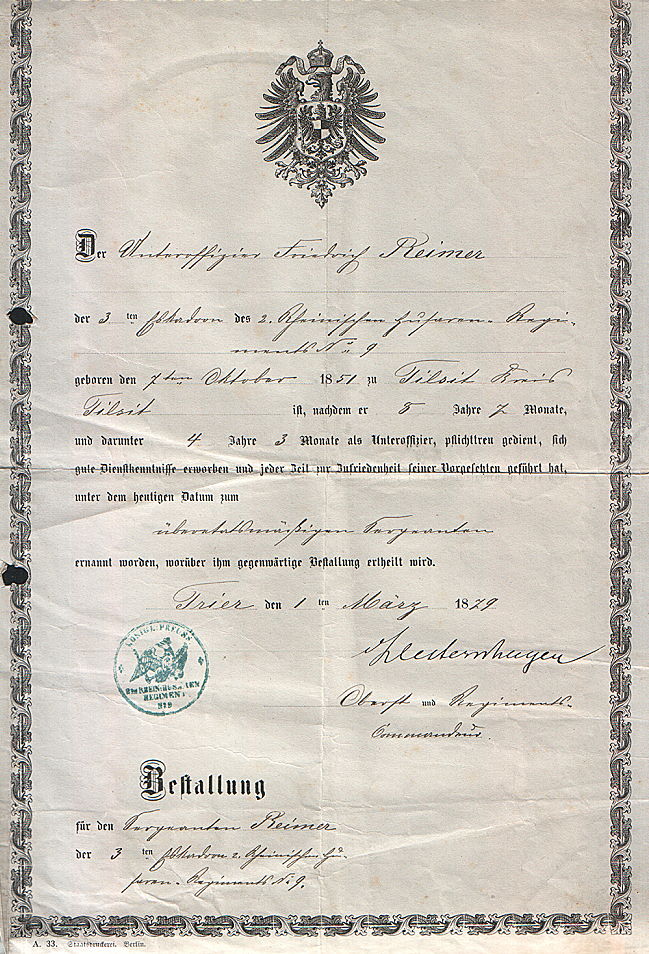 Der Unteroffizier Friedrich Reimer
der 3 ten Eskadron des 2. Rheinischen Husaren-Regi-
ments No 9
geboren den 7ten Oktober 1851 zu Tilsit Kreis
Tilsit ist, nachdem er 8 Jahre 7 Monate,
und darunter 4 Jahre 3 Monate als Unteroffizier, pflichttreu gedient, sich
gute Dienstkenntnisse erworben und jeder Zeit zur Zufriedenheit seiner Vorgesetzten geführt hat,
unter dem heutigen Datum zum
überetatsmäßigen Sergeanten
ernannt worden, worüber ihm gegenwärtige Bestallung ertheilt wird.
Trier den 1 ten März 1879
Oberst und Regiments-
Commandeur.
KÖNIGL. PREUSS.
2tes RHEIN. HUSAREN
REGIMENT
No 9
Bestallung
für den Sergeanten Reimer
der 3 ten Eskadron 2. Rheinischen Hu-
saren-Regiments No 9.
A. 33. Staatsdruckerei. Berlin.